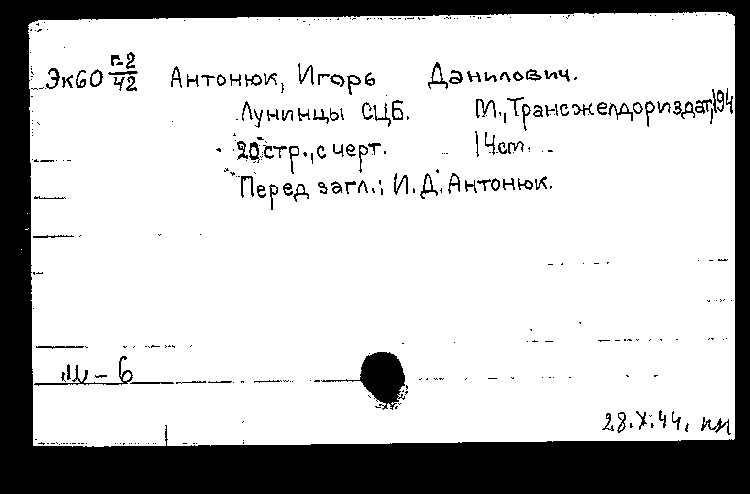 Эк60 г-2/42 Антонюк, Игорь Данилович.
Лунинцы СЦБ. М., Трансжелдориздат, 194
20 стр., с черт. 14 cm.
Перед загл.: И. Д. Антонюк.
Ш - 6
28.X.44.